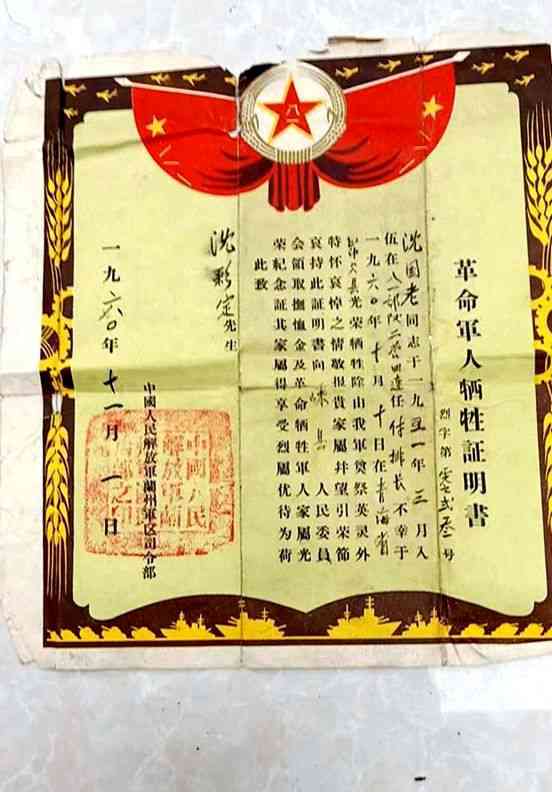 革命軍人牺牲証明書
烈字第 零弍叁 号
沈国老同志于一九五一年三月入
伍在八一部队二营四連任付排长不幸于
一九六〇年十月十日在青海省
光荣牺牲除由我軍奠祭英灵外
特怀哀悼之情敬报貴家屬幷望引荣節
哀持此証明書向 县人民委員
会領取撫恤金及革命牺牲軍人家屬光
荣紀念証其家屬得享受烈屬优待为荷
此致
沈彩定先生
中國人民解放軍蘭州軍区司令部
一九六〇年十一月一日
八一